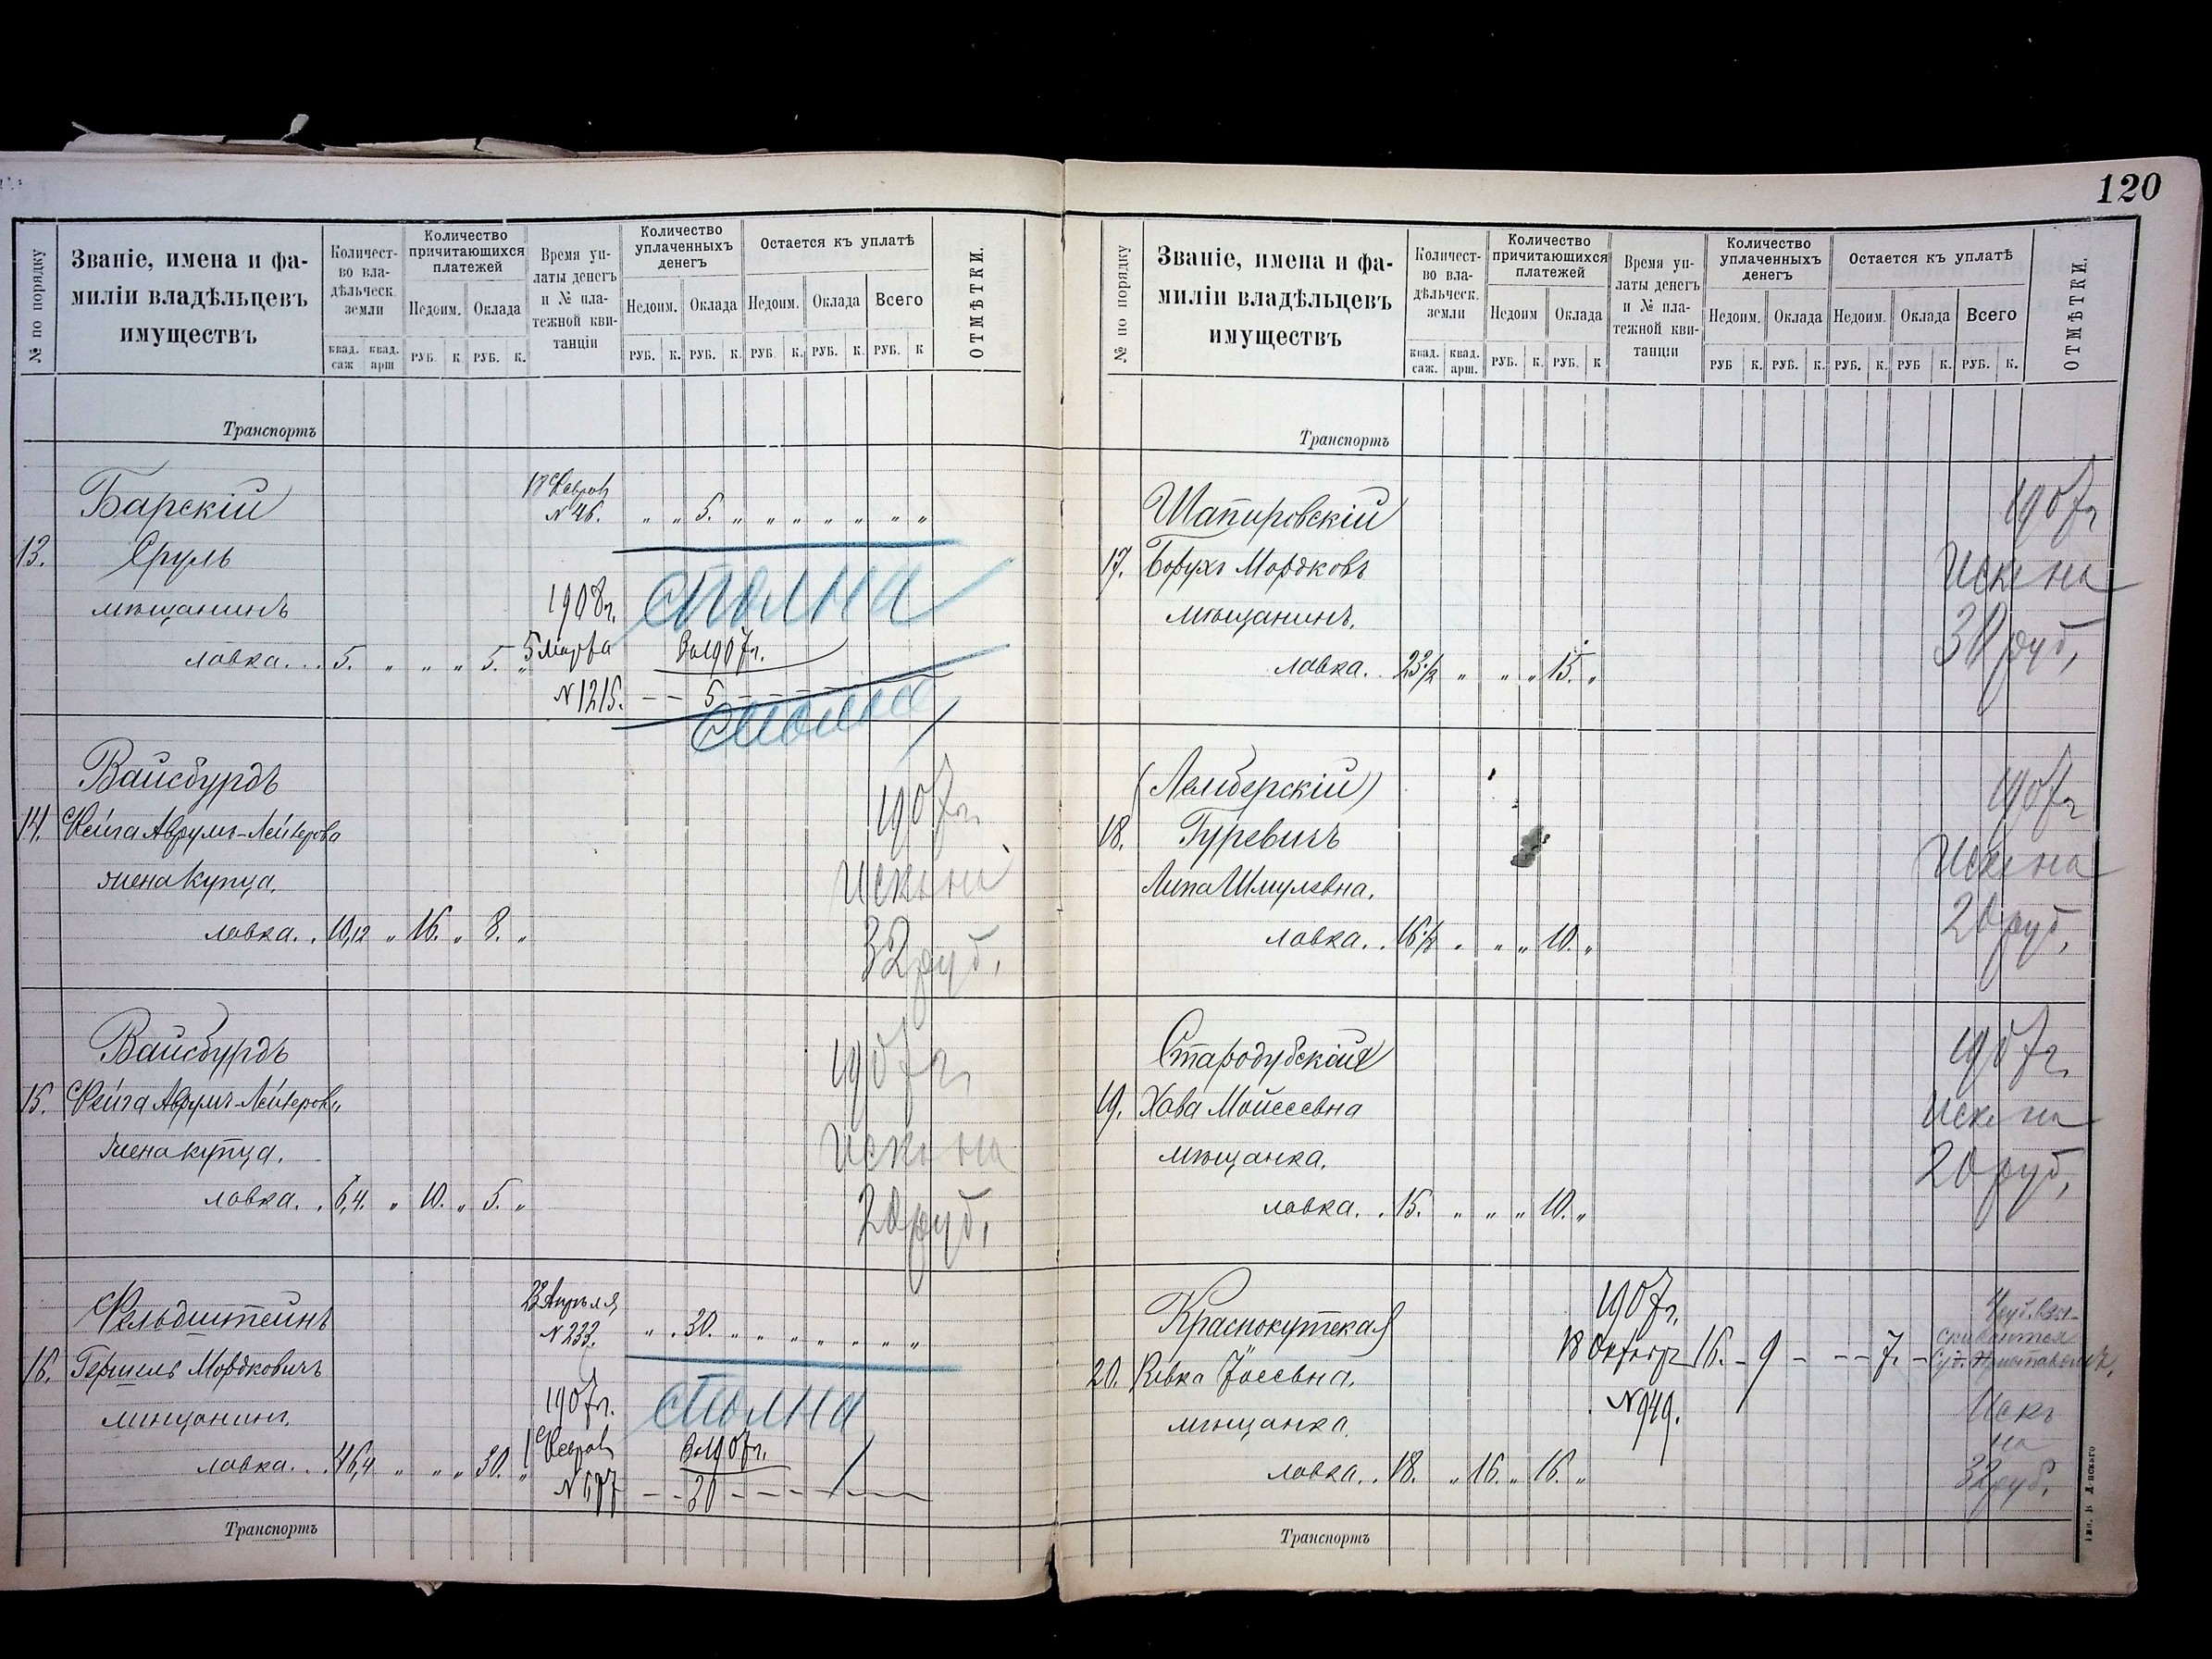 120
№ по порядку
Званіе, имена и фа-
миліи владѣльцевъ
имуществъ
Количест-
во вла-
дѣльческ.
земли
квад. саж квад. арш
Количество
причитающихся
платежей
Недоим. Оклада
РУБ. К РУБ. К.
Время уп-
латы денегъ
и № пла-
тежной кви-
танціи
Количество
уплаченныхъ
денегъ
Недоим. Оклада
РУБ. К. РУБ. К.
Остается къ уплатѣ
Недоим. Оклада Всего
РУБ К. РУБ. К. РУБ. К
ОТМѢТКИ.
Транспортъ
Барскій
13. Сруль
мѣщанинъ
лавка... 5. „ „ „ 5. „
18 Феврал
N 46. „ „ 5. „ „ „ „ „ „ „
1908г. сполна
5 Марта За 1907г.
N 1215. – – 5 – – – –
сполна
Вайсбурдъ
14. Фейга Аврумъ-Лейзерова
жена купца.
лавка. . 10,12 „ 16. „ 8. „
1907г.
Искъ на
32 руб.
Вайсбурдъ
15. Фейга Аврумъ-Лейзеров
жена купца.
лавка. . 6,4. „ 10. „ 5. „
1907г.
Искъ на
20 руб.
Фельдштейнъ
16. Гершель Мордковичъ
мѣщанинъ
лавка. . 46,4 „ „ „ 30. „
23 Апрѣля,
N 233. „ . 30. „ „ „ „ „ „ „
1907г. сполна
Феврал За 1907г.
– – 30 – – – – –
Транспортъ
№ по порядку
Званіе, имена и фа-
миліи владѣльцевъ
имуществъ
Количест-
во вла-
дѣльческ.
земли
квад. саж. квад. арш.
Количество
причитающихся
платежей
Недоим Оклада
РУБ. К. РУБ. К
Время уп-
латы денегъ
и № пла-
тежной кви-
танціи
Количество
уплаченныхъ
денегъ
Недоим. Оклада
РУБ К. РУБ. К.
Остается къ уплатѣ
Недоим. Оклада Всего
РУБ. К. РУБ К. РУБ. К.
ОТМѢТКИ.
Транспортъ
Шапировскій
17. Борухъ Мордковъ
мѣщанинъ.
лавка. . 23½ „ „ „ 15. „
1907г
Искъ на
30 руб.
(Лемберскій)
18. Гуревичъ
Липа Шмулевна.
лавка. . 16½ „ „ „ 10. „
1907г
Искъ на
20 руб.
Стародубская
19. Хава Мойсеевна
мѣщанка.
лавка. . 15. „ „ „ 10. „
1907г.
Искъ на
20 руб.
Краснокутская
20. Ривка Іосевна.
мѣщанка.
лавка. . 18. „ 16. „ 16. „
1907г.
18 Октября 16. – 9 – – – 7. –
N 949.
Искъ
на
32 руб.
Транспортъ